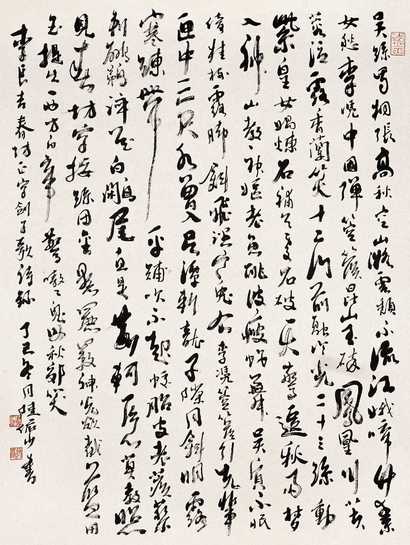 吳絲蜀桐張高秋空山凝雲頹不流江娥啼竹素
女愁李憑中國彈箜篌崑山玉碎鳳凰叫芙
蓉泣露香蘭笑十二門前融冷光二十三絲動
紫皇女媧煉石補天處石破天驚逗秋雨夢
入神山教神嫗老魚跳波瘦蛟舞吳質不眠
倚桂樹露腳斜飛濕寒兔 右李憑箜篌引 先輩
匣中三尺水曾入吳潭斬龍子隙月斜明露
寒練帶平鋪吹不起蛟胎皮老蒺藜
刺鸊鵜淬花白鷴尾直是荊軻一片心莫教照
見春坊字挼絲團金懸簏簌神光欲截藍田
玉提出西方白帝驚嗷嗷鬼母秋郊哭
李長吉春坊正字劍子歌詩 丁巳冬月陸儼少書